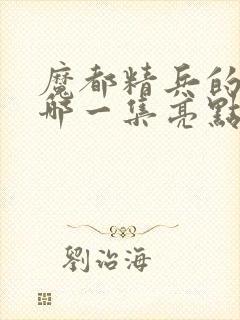 魔都精兵的
哪一集亮點
劉治海